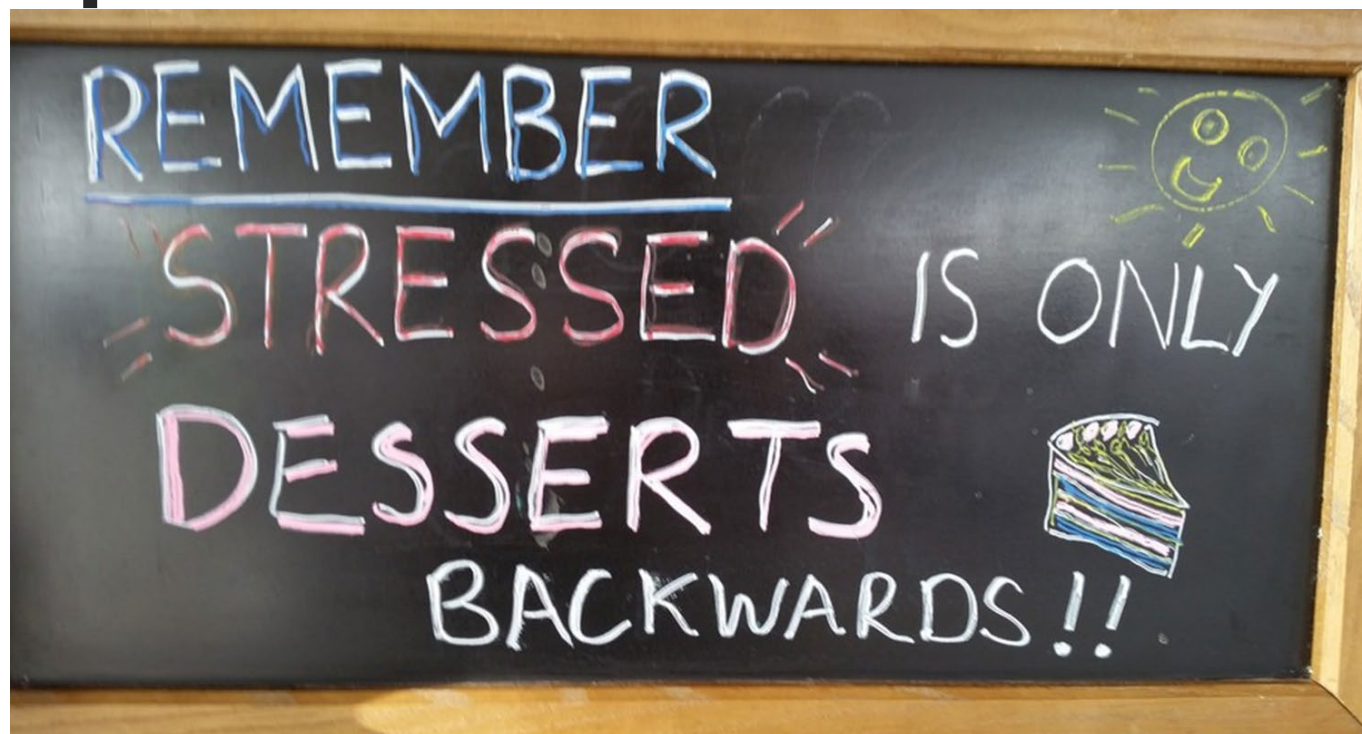 REMEMBER
STRESSED IS ONLY
DESSERTS
BACKWARDS!!